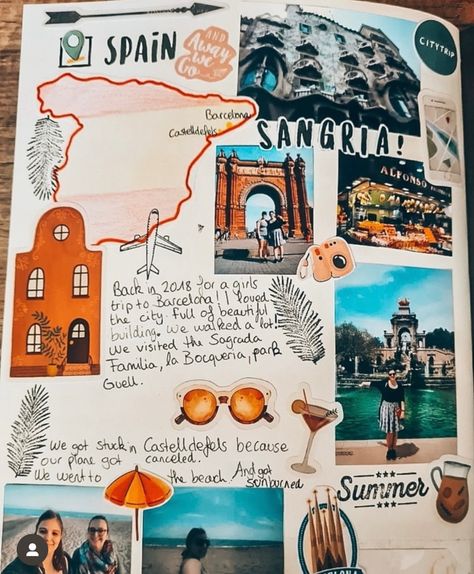 SPAIN
AND
Away
we
Go
CITYTRIP
Barcelona
Castelldefels
SANGRIA!
ALFONSO
Back in 2018 for a girls
trip to Barcelona! I loved
the city full of beautiful
building. We walked a lot!
We visited the Sagrada
Familia, la Bocqueria, park
Guell.
We got stuck in Castelldefels because
our plane got canceled.
We went to the beach. And got
sunburned
Summer